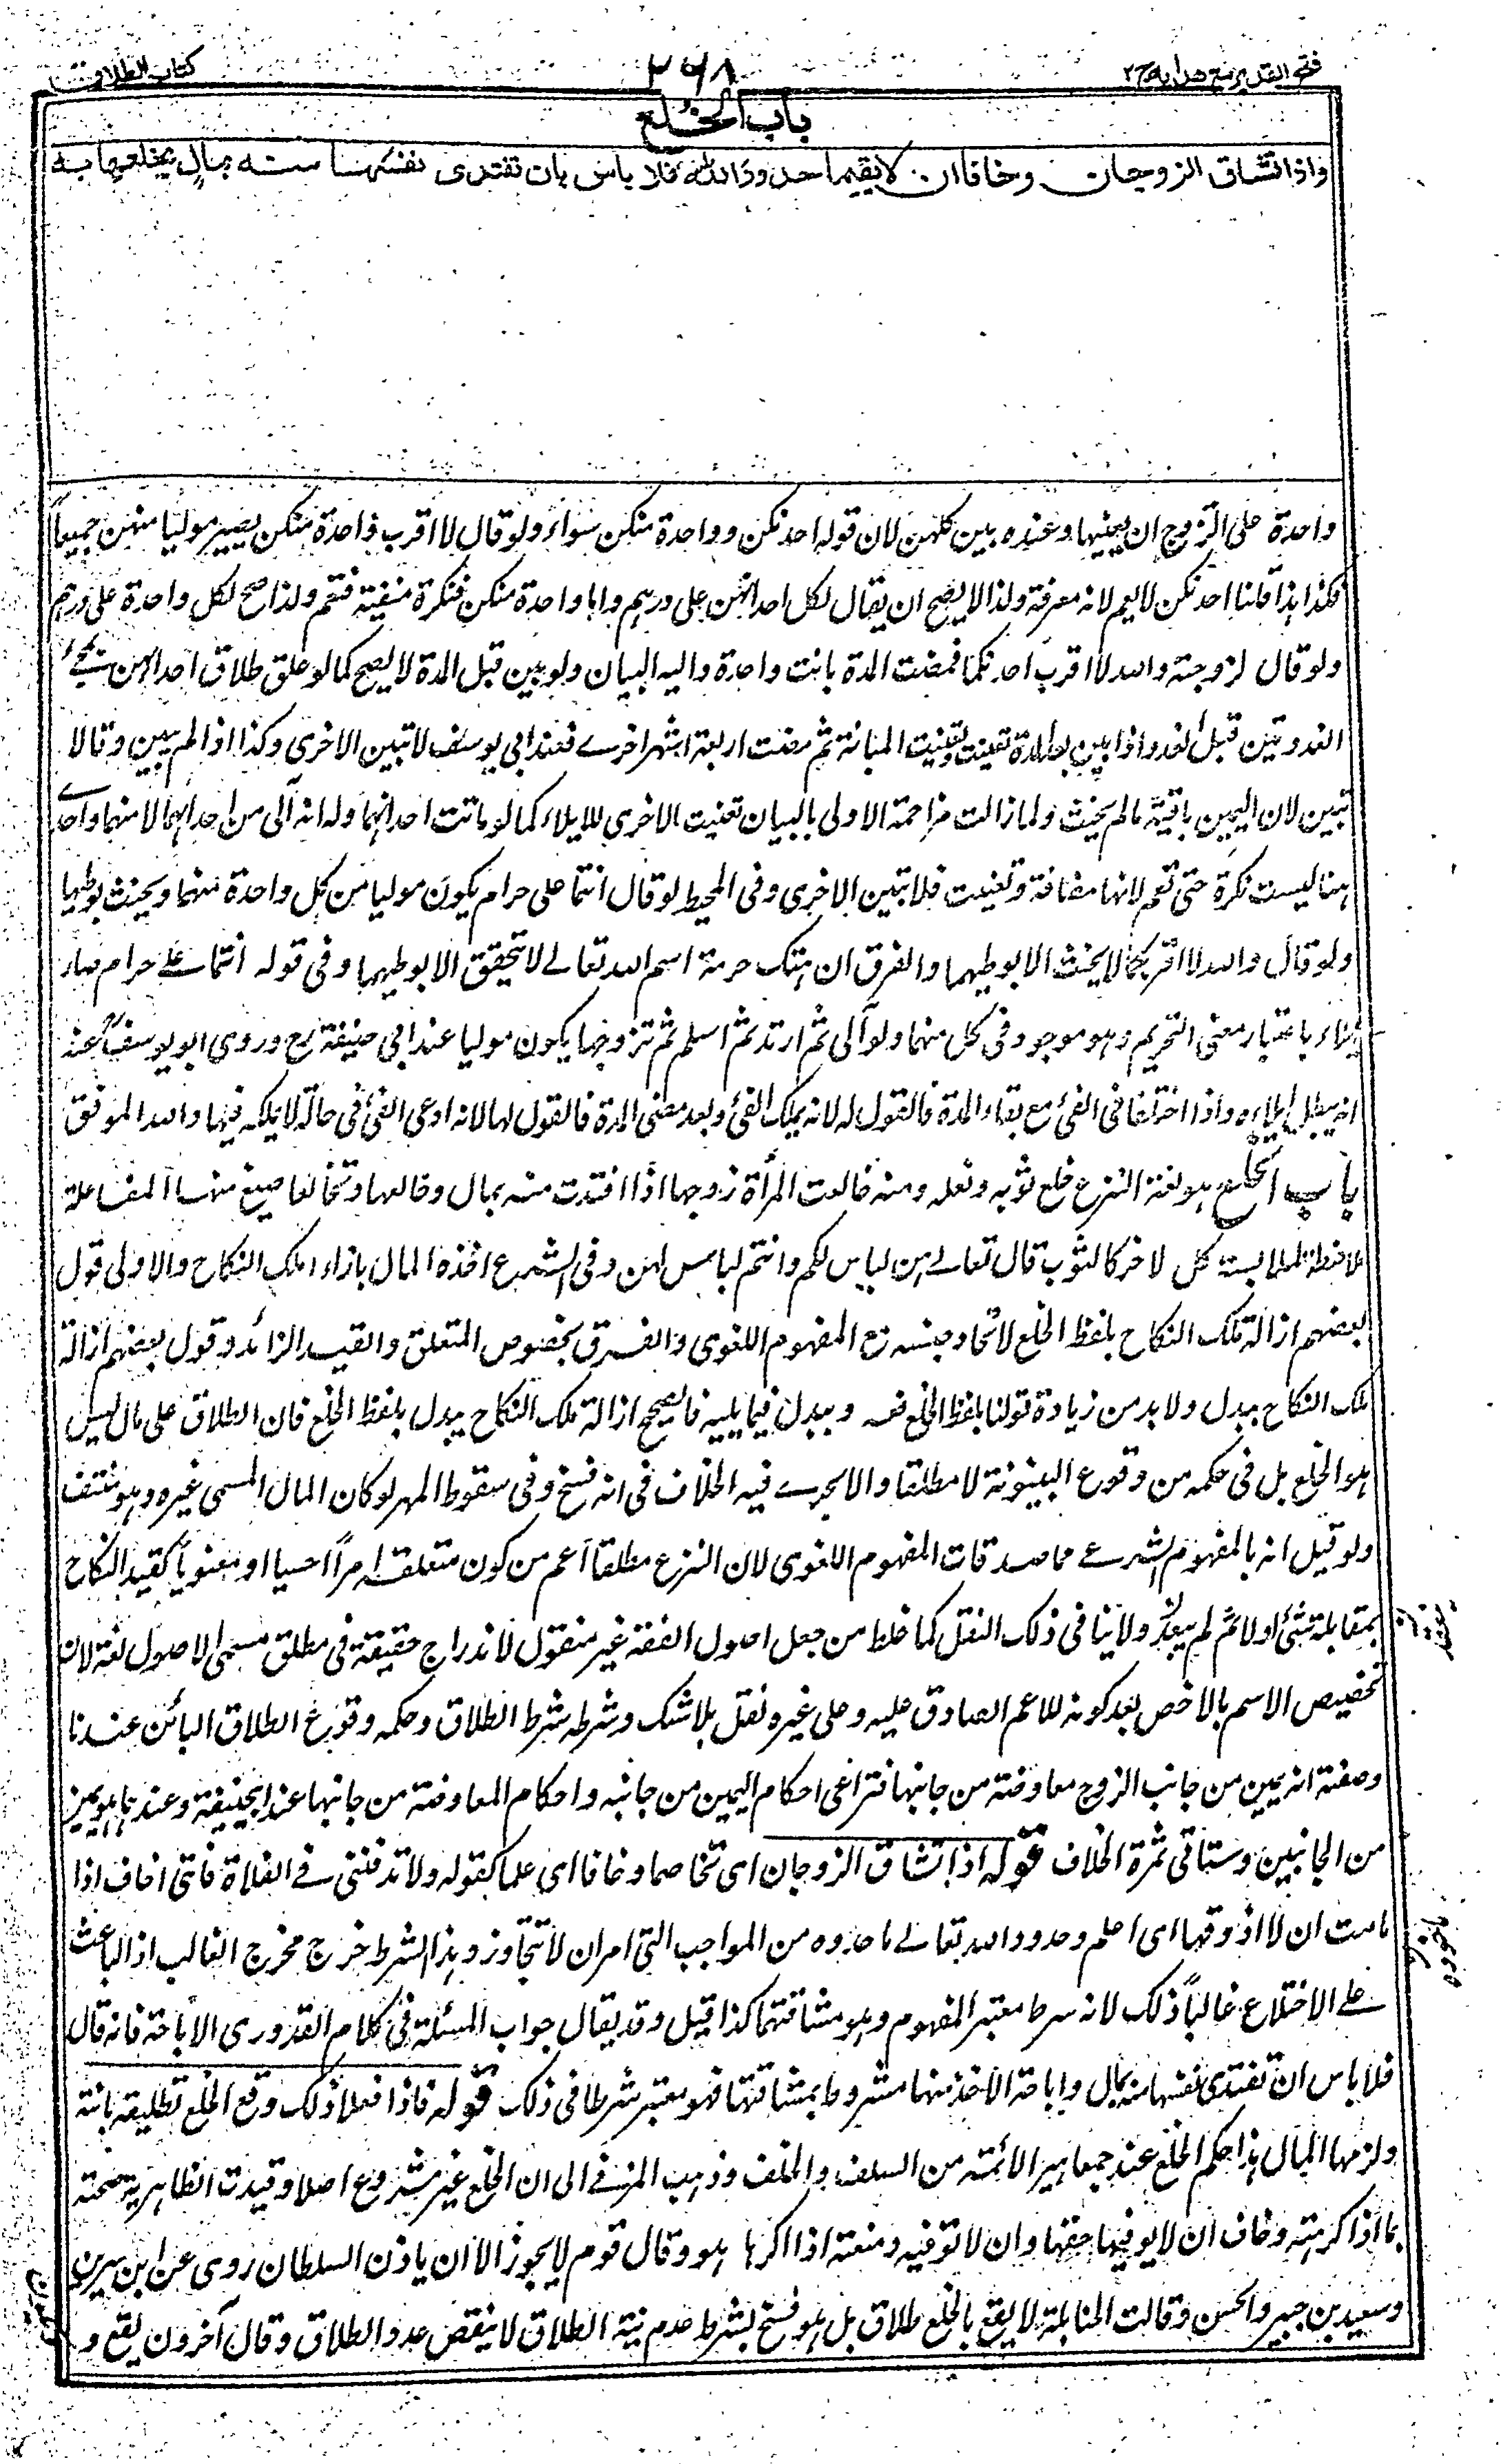 فتح القدير مع هدايه ج ٢
٣٦٨
كتاب الطلاق
باب الخلع
واذا تشاق الزوجان وخافا ان لا يقيما حدود الله فلا باس بان تفتدى نفسها منه بمال يخلعها به
واحدة على الزوج ان يعينها وعنده يبين كلهن لان قوله احدنكن وواحدة منكن سواء ولو قال لا اقرب واحدة منكن يصير موليا منهن جميعاً
فكذا هذا قلنا احدنكن لا يعم لانه معرفة ولذا لا يصح ان يقال لكل احدانهن على درهم واما واحدة منكن فنكرة منفية فتعم ولذا صح لكل واحدة على درهم
ولو قال لزوجته والله لا اقرب احدنكما فمضت المدة بانت واحدة واليه البيان ولو بين قبل المدة لا يصح كما لو علق طلاق احداهن بمجئ
الغد وتبين قبل الغد واذا بين بعد المدة تعينت وتعينت المبانة ثم مضت اربعة اشهر اخرى فعند ابي يوسف لا تبين الاخرى وكذا اذا لم يبين وقالا
تبين لان اليمين باقية ما لم يحنث ولما زالت مزاحمة الاولى بالبيان تعينت الاخرى للايلاء كما لو ماتت احدانهما وله انه آلى من احداهما لا منهما واحدى
هنا ليست نكرة حتى تعم لانها مضافة وتعينت فلا تبين الاخرى وفى المحيط لو قال انتما على حرام يكون موليا من كل واحدة منهما ويحنث بوطيها
ولو قال والله لا اقربكما لا يحنث الا بوطيهما والفرق ان هتك حرمة اسم الله تعالى لا تتحقق الا بوطيهما وفى قوله انتما على حرام صار
ايلاء باعتبار معنى التحريم وهو موجود فى كل منهما ولو آلى ثم ارتد ثم اسلم ثم تزوجها يكون موليا عند ابي حنيفة رح وروى ابو يوسف عنه
انه يبطل ايلاءه واذا اختلفا فى الفئ مع بقاء المدة فالقول له لانه يملك الفئ وبعد مضى المدة فالقول لها لانه ادعى الفئ فى حالة لا يملكه فيها والله الموفق
باب الخلع هو لغة النزع خلع ثوبه ونعله ومنه خالعت المرأة زوجها اذا افتدت منه بمال وخالعها وتخالعا صيغ منها المفاعلة
ملاحظة لملابسة كل لاخر كالثوب قال تعالى هن لباس لكم وانتم لباس لهن وفى الشرع اخذه المال بازاء ملك النكاح والاولى قول
بعضهم ازالة ملك النكاح بلفظ الخلع لاتحاد جنسه مع المفهوم اللغوى والفرق بخصوص المتعلق والقيد الزائد وقول بعضهم ازالة
ملك النكاح ببدل ولا بد من زيادة قولنا بلفظ الخلع فيه وببدل فيما يليه فالصحيح ازالة ملك النكاح ببدل بلفظ الخلع فان الطلاق على مال ليس
هو الخلع بل فى حكمه من وقوع البينونة لا مطلقا والا لجرى فيه الخلاف فى انه فسخ وفى سقوط المهر لو كان المال المسمى غيره وهو منتف
ولو قيل انه بالمفهوم الشرعى مما صدقات المفهوم اللغوى لان النزع مطلقاً اعم من كون متعلقه امراً حسيا او معنوياً كقيد النكاح
بمقابلة شئ او لا ثم لم يبعد ولا ينافى ذلك النقل كما غلط من جعل اصول الفقه غير منقول لاندراج حقيقة فى مطلق مسمى الاصول لغة لان
تخصيص الاسم بالاخص بعد كونه للاعم الصادق عليه وعلى غيره نقل بلا شك وشرطه شرط الطلاق وحكمه وقوع الطلاق البائن عندنا
وصفته انه يمين من جانب الزوج معاوضة من جانبها فتراعى احكام اليمين من جانبه واحكام المعاوضة من جانبها عند ابيحنيفة وعندهما هو يمين
من الجانبين وستاتى ثمرة الخلاف قوله اذا تشاق الزوجان اى تخاصما وخافا اى علما كقوله ولا تدفننى فى الفلاة فاننى اخاف اذا
مامت ان لا اذوقها اى اعلم وحدود الله تعالى ما حدوه من المواجب التى امر ان لا تتجاوز وهذا الشرط خرج مخرج الغالب اذ الباعث
على الاختلاع غالباً ذلك لانه شرط معتبر المفهوم وهو مشاقتهما كذا قيل وقد يقال جواب المسئلة فى كلام القدورى الاباحة فانه قال
فلا باس ان تفتدى نفسها منه بمال واباحة الاخذ منها مشروط بمشاقتها فهو معتبر شرطا فى ذلك قوله فاذا فعلا ذلك وقع الخلع تطليقة بائنة
ولزمها المال هذا حكم الخلع عند جماهير الائمة من السلف والخلف وذهب المزنى الى ان الخلع غير مشروع اصلا وقيدت الظاهرية صحته
بما اذا كرهته وخاف ان لا يوفيها حقها وان لا توفيه ومنعته اذا اكرهها هو وقال قوم لا يجوز الا ان ياذن السلطان روى عن ابن سيرين
وسعيد بن جبير والحسن وقالت الحنابلة لا يقع بالخلع طلاق بل هو فسخ بشرط عدم نية الطلاق لا ينقص عدد الطلاق وقال آخرون يقع و